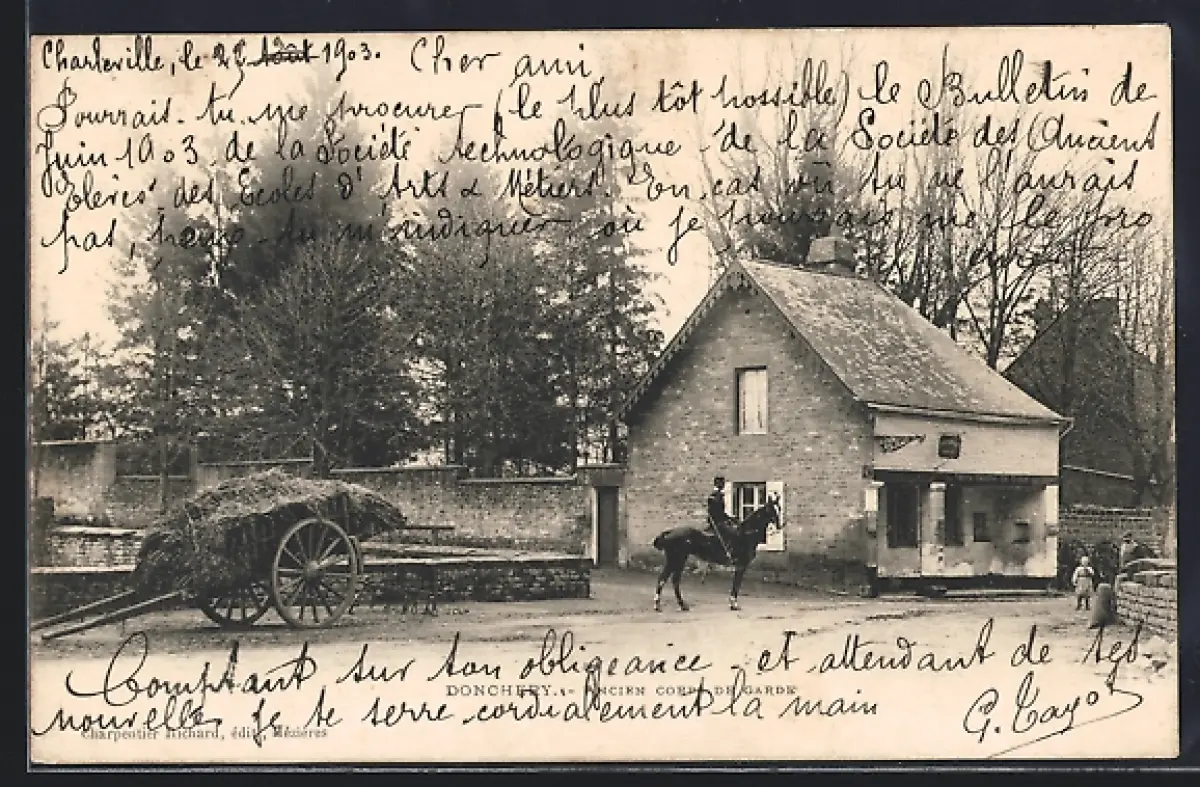 Charleville, le 25 Août 1903. Cher ami,
Pourrais-tu me procurer (le plus tôt possible) le Bulletin de
Juin 1903 de la Société technologique de la Société des Anciens
Elèves des Ecoles d'Arts & Métiers. En cas où tu ne l'aurais
pas, peux-tu m'indiquer où je pourrais me le pro
curer
Comptant sur ton obligeance et attendant de tes
DONCHERY. - ANCIEN CORPS DE GARDE
nouvelles je te serre cordialement la main
G. Tayot
Charpentier Richard, édit., Mézières